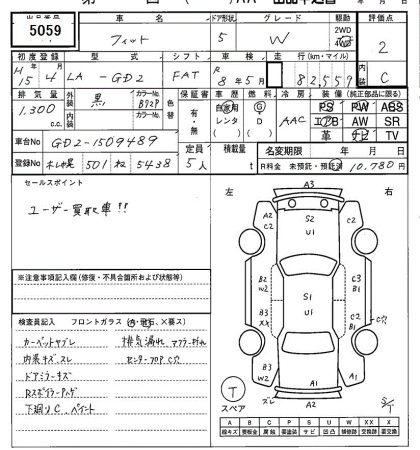 出品番号 5059
車名 フィット
ドア形状 5
グレード W
駆動 2WD 4WD
評価点 2
初度登録 H15 4
型式 LA-GD2
シフト FAT
車検 R8年5月
走行(km・マイル) 82,559
内装 C
排気量 1,300 c.c.
外装 黒
カラーNo. B92P
内装 カラーNo.
色替
保証書 有・無
車歴 自家用 レンタ
燃料 G D
冷房 AAC
装備(純正部品に限る)
PS PW ABS
エアB AW SR
革 ナビ TV
車台No GD2-1509489
登録No 501 ね 5438
定員 5人
積載量 t
名変期限 年 月 日
R料金 未預託・預託済 10,780円
セールスポイント
ユーザー買取車!!
※注意事項記入欄(修復・不具合箇所および状態等)
検査員記入 フロントガラス
カーペットヤブレ
内装キズ、スレ
ドアミラーキズ
下廻りC、ペイント
排気漏れ
左 右
A3
A2 C2
S2
U1
C2
B2 W2
C3 B1
S1
U1
B3 XX
C2 B1
C穴
B3 W2
A1
A1
A2
スレ
T
スペア
S/T
A B C P S U W X XX
線キズ 腐蝕 要塗装 サビ 凹ミ 補修跡 交換跡